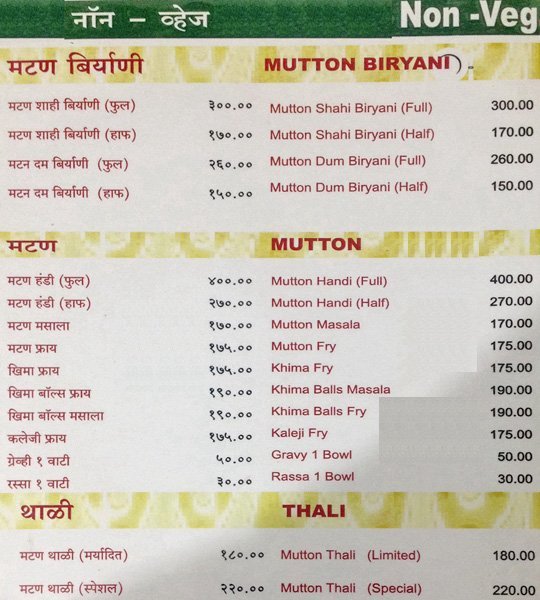 नॉन - व्हेज Non -Veg
मटण बिर्याणी MUTTON BIRYANI
मटण शाही बिर्याणी (फुल) ३००.०० Mutton Shahi Biryani (Full) 300.00
मटण शाही बिर्याणी (हाफ) १७०.०० Mutton Shahi Biryani (Half) 170.00
मटन दम बिर्याणी (फुल) २६०.०० Mutton Dum Biryani (Full) 260.00
मटन दम बिर्याणी (हाफ) १५०.०० Mutton Dum Biryani (Half) 150.00
मटण MUTTON
मटण हंडी (फुल) ४००.०० Mutton Handi (Full) 400.00
मटण हंडी (हाफ) २७०.०० Mutton Handi (Half) 270.00
मटण मसाला १७०.०० Mutton Masala 170.00
मटण फ्राय १७५.०० Mutton Fry 175.00
खिमा फ्राय १७५.०० Khima Fry 175.00
खिमा बॉल्स फ्राय १९०.०० Khima Balls Masala 190.00
खिमा बॉल्स मसाला १९०.०० Khima Balls Fry 190.00
कलेजी फ्राय १७५.०० Kaleji Fry 175.00
ग्रेव्ही १ वाटी ५०.०० Gravy 1 Bowl 50.00
रस्सा १ वाटी ३०.०० Rassa 1 Bowl 30.00
थाळी THALI
मटण थाळी (मर्यादित) १८०.०० Mutton Thali (Limited) 180.00
मटण थाळी (स्पेशल) २२०.०० Mutton Thali (Special) 220.00